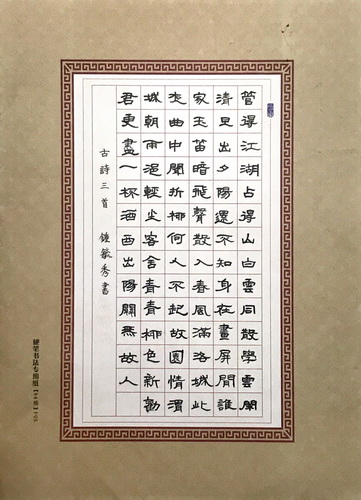 管得江湖占得山白雲同散學雲閑
清旦出夕陽還不知身在畫屏間誰
家玉笛暗飛聲散入春風滿洛城此
夜曲中聞折柳何人不起故園情渭
城朝雨浥輕尘客舍青青柳色新勸
君更盡一杯酒西出陽關無故人
古詩三首 鍾敏秀書
硬笔书法专用纸